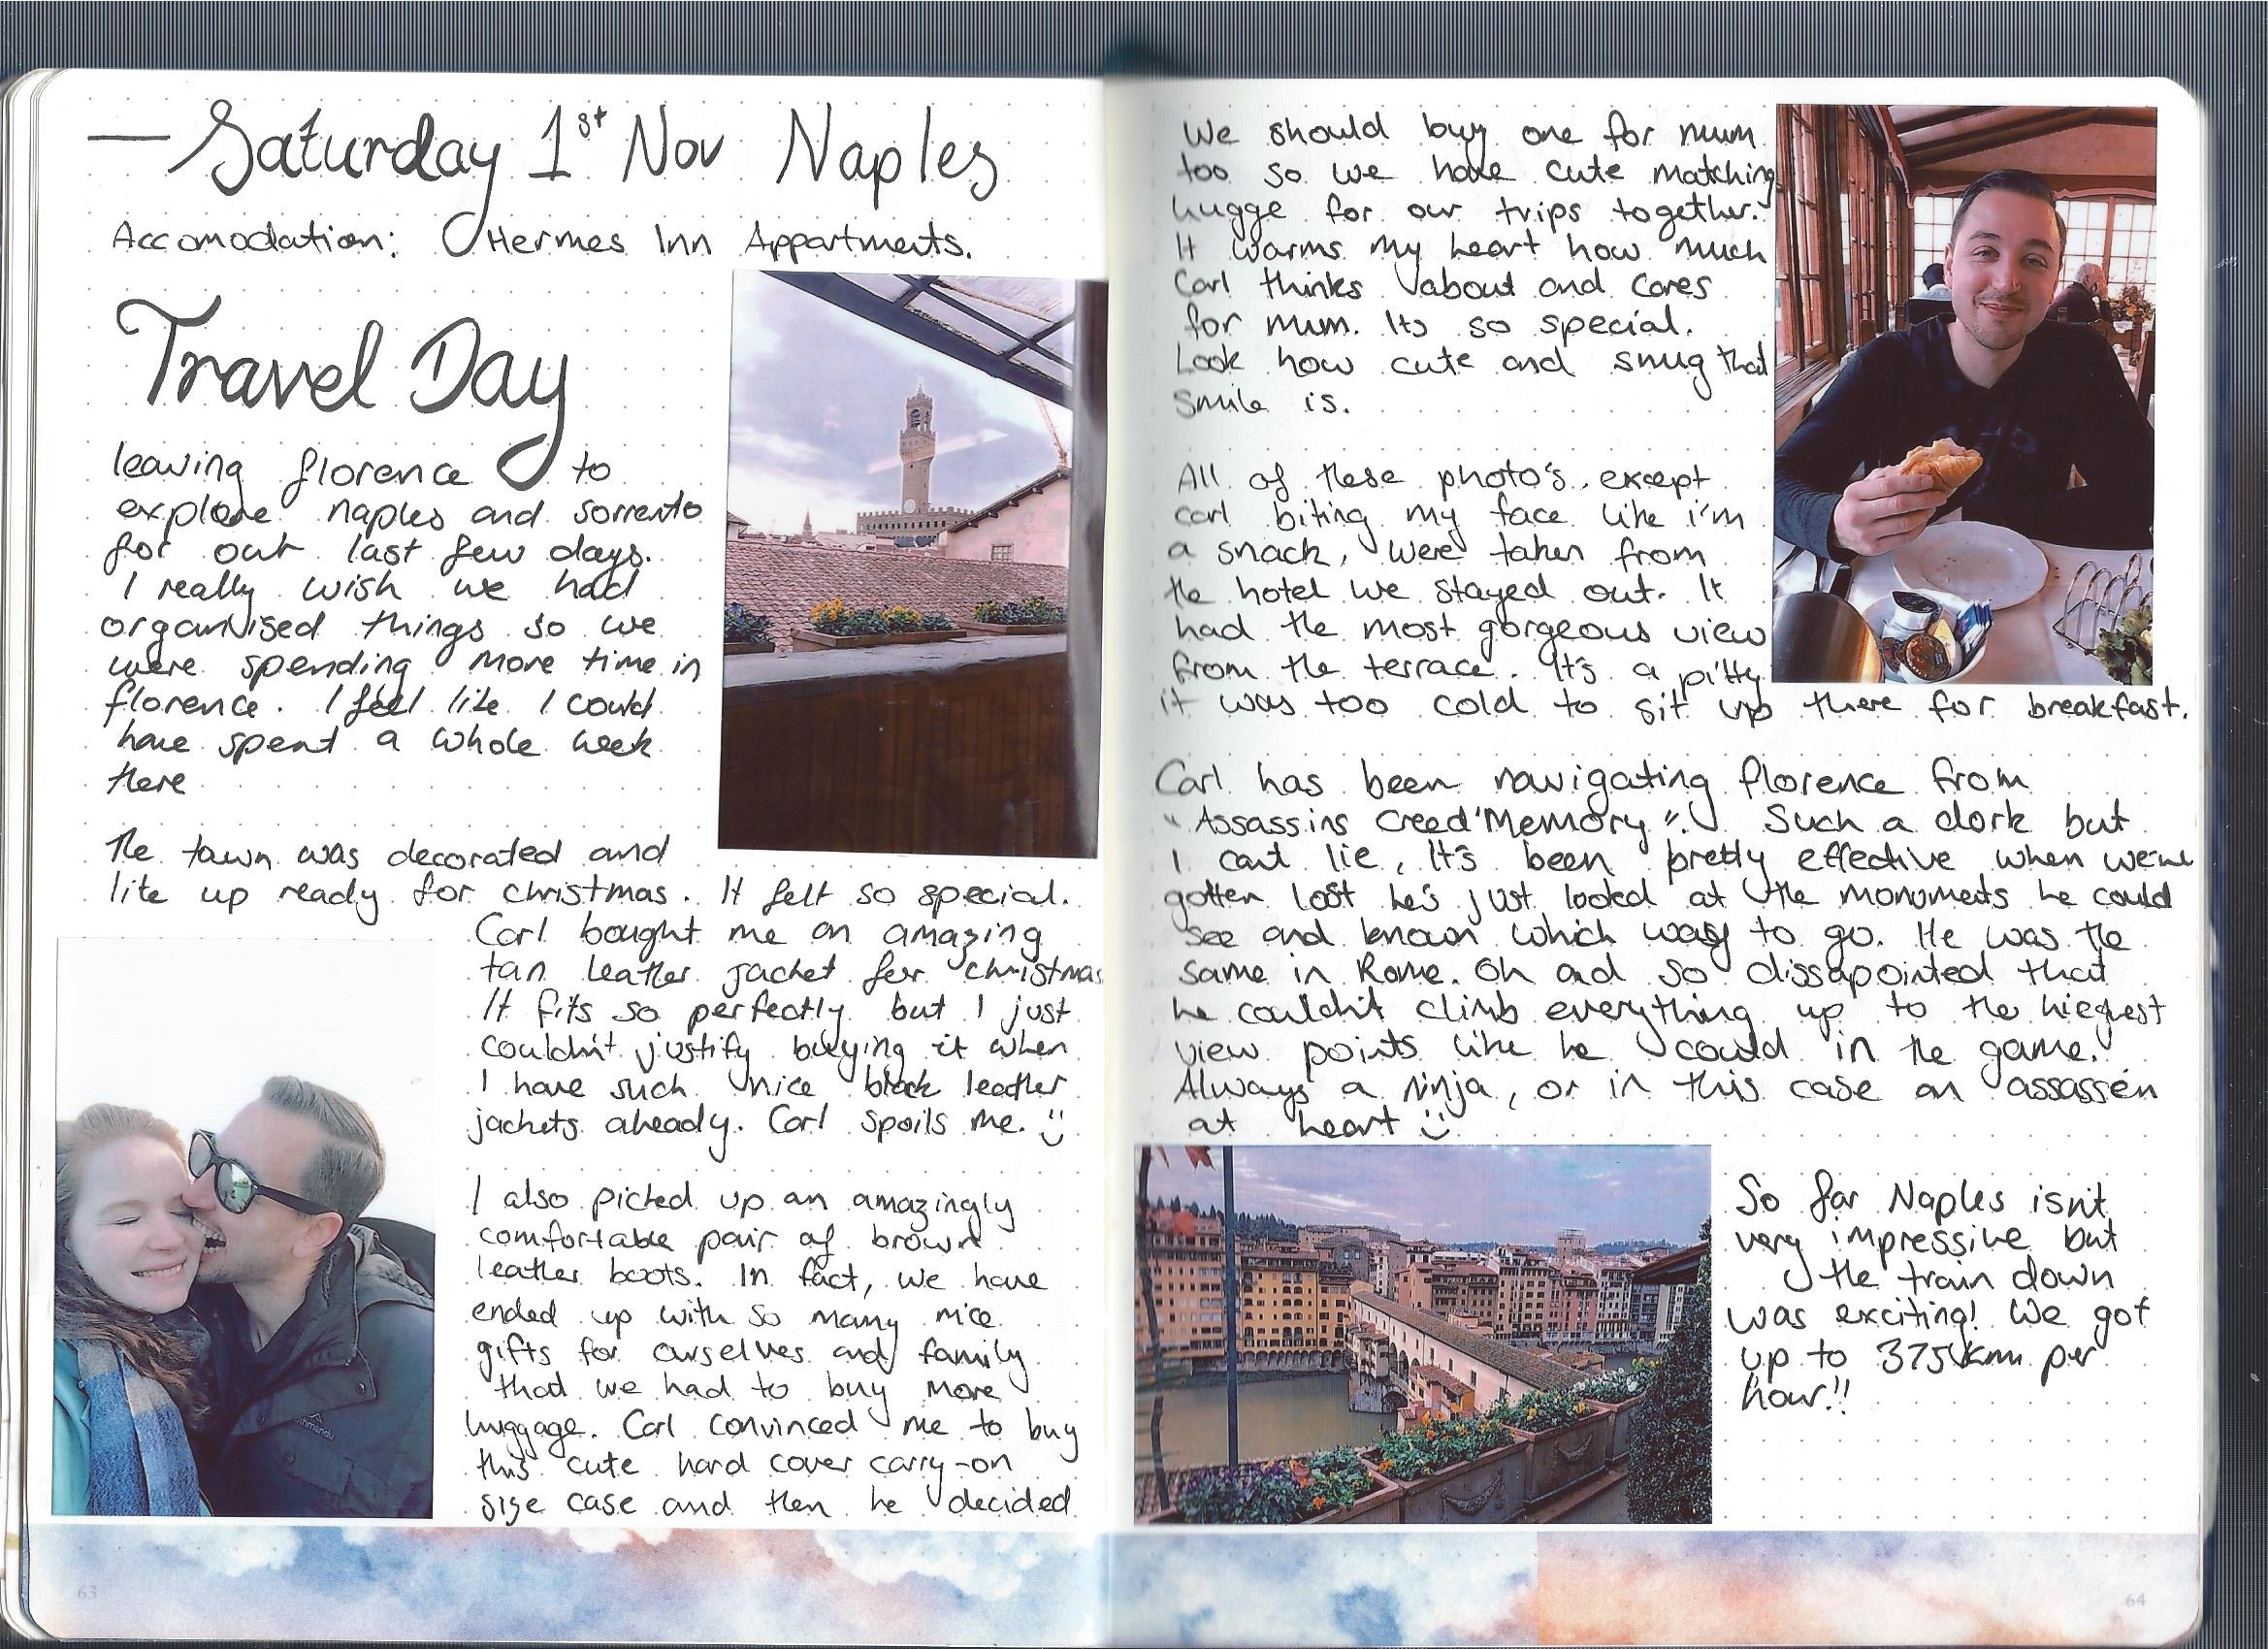 Saturday 1st Nov Naples
Accomodation: Hermes Inn Appartments.
Travel Day
leaving florence to
explore naples and sorrento
for out last few days.
I really wish we had
organised things so we
were spending more time in
florence. I feel like I could
have spent a whole week
there
The town was decorated and
lite up ready for christmas. It felt so special.
Carl bought me an amazing
tan leather jacket for christmas
It fits so perfectly but I just
couldn't justify buying it when
I have such nice black leather
jackets already. Carl spoils me. :)
I also picked up an amazingly
comfortable pair of brown
leather boots. In fact, we have
ended up with so many nice
gifts for ourselves and family
that we had to buy more
luggage. Carl convinced me to buy
this cute hard cover carry-on
size case and then he decided
63
We should buy one for mum
too so we have cute matching
lugge for our trips together.
It warms my heart how much
Carl thinks about and cares
for mum. Its so special.
Look how cute and snug that
smile is.
All of these photo's, except
carl biting my face like i'm
a snack, were taken from
the hotel we stayed out. It
had the most gorgeous view
from the terrace. It's a pitty
it was too cold to sit up there for breakfast.
Carl has been navigating florence from
"Assassins Creed Memory". Such a dork but
I cant lie, It's been pretty effective when we've
gotten lost he's just looked at the monuments he could
see and known which way to go. He was the
same in Rome. Oh and so dissapointed that
he couldn't climb everything up to the hieghest
view points like he could in the game.
Always a ninja, or in this case an assassin
at heart :)
So far Naples isn't
very impressive but
the train down
was exciting! We got
up to 375km per
hour!!
64